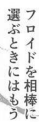 フロイドを相棒に
選ぶときにはもう